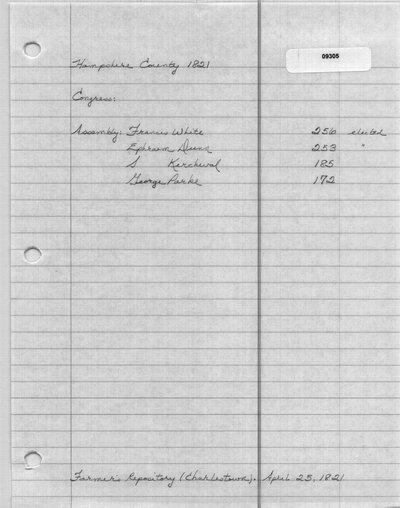 09305
Hampshire County 1821
Congress:
Assembly: Francis White 256 elected
Ephram Dunn 253 "
S Kercheval 185
George Parke 172
Farmer's Repository (Charlestown). April 25, 1821